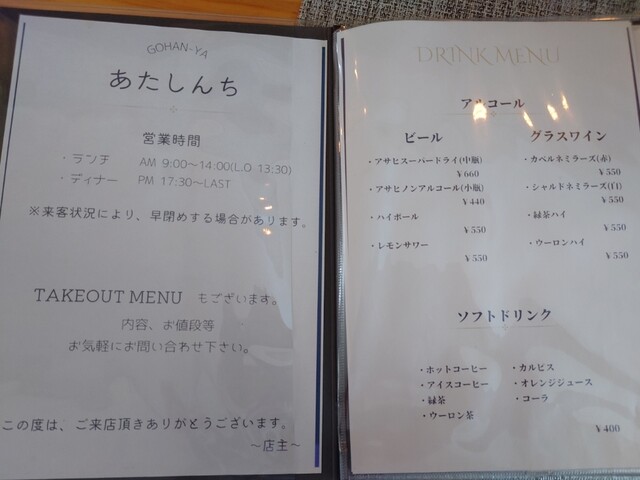 GOHAN-YA
あたしんち
営業時間
・ランチ AM 9:00〜14:00(L.O 13:30)
・ディナー PM 17:30〜LAST
※来客状況により、早閉めする場合があります。
TAKEOUT MENU もございます。
内容、お値段等
お気軽にお問い合わせ下さい。
この度は、ご来店頂きありがとうございます。
〜店主〜
DRINK MENU
アルコール
ビール
・アサヒスーパードライ(中瓶)
￥660
・アサヒノンアルコール(小瓶)
￥440
・ハイボール
￥550
・レモンサワー
￥550
グラスワイン
・カベルネミラーズ(赤)
￥550
・シャルドネミラーズ(白)
￥550
・緑茶ハイ
￥550
・ウーロンハイ
￥550
ソフトドリンク
・ホットコーヒー
・アイスコーヒー
・緑茶
・ウーロン茶
・カルピス
・オレンジジュース
・コーラ
￥400